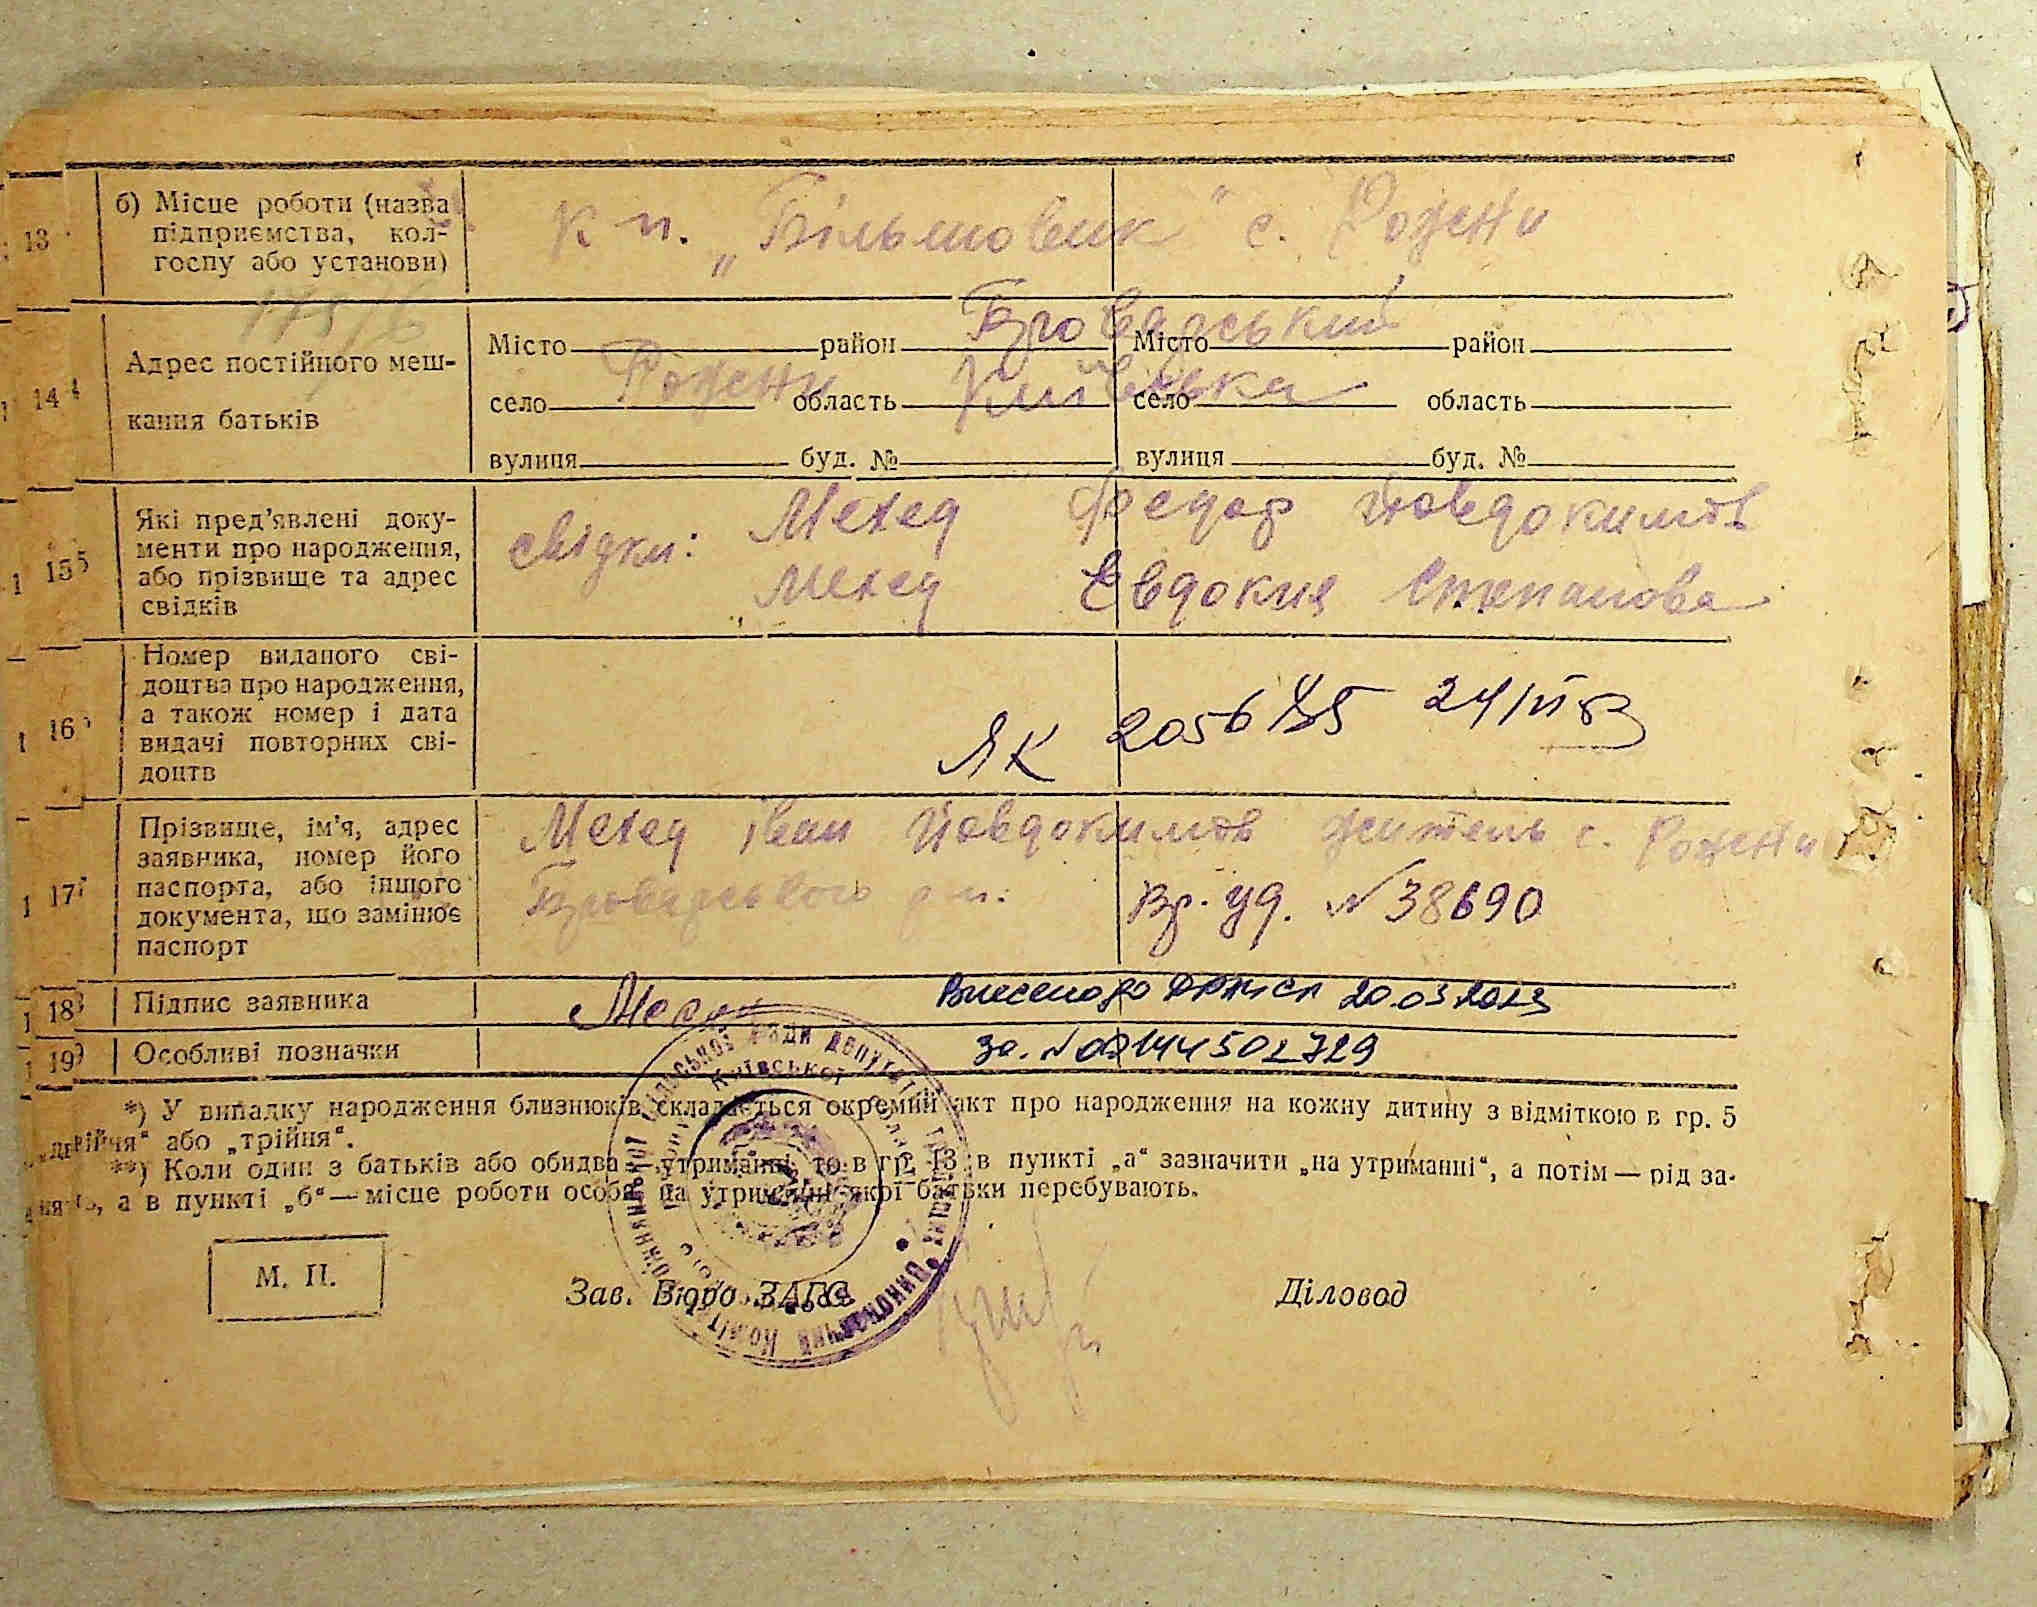 13 б) Місце роботи (назва підприємства, кол-
госпу або установи)
к п. „Більшовик" с. Рожни
175/6
14 Адрес постійного меш-
кання батьків
Місто район Броварський Місто район
село Рожни область Київська село область
вулиця буд. № вулиця буд. №
15 Які пред'явлені доку-
менти про народження,
або прізвище та адрес
свідків
свідки: Мехед Федор Йовдокимов
Мехед Евдокия Степанова
16 Номер виданого сві-
доцтва про народження,
а також номер і дата
видачі повторних сві-
доцтв
ЯК 2056
17 Прізвище, ім'я, адрес
заявника, номер його
паспорта, або іншого
документа, що замінює
паспорт
Мехед Іван Йовдокимов житель с. Рожни
Броварського р-н. Вр. уд. № 38690
18 Підпис заявника
Внесено до ДРАЦСГ 20.03.2023
19 Особливі позначки
за. № 00144502729
*) У випадку народження близнюків складається окремий акт про народження на кожну дитину з відміткою в гр. 5
„двійня" або „трійня".
**) Коли один з батьків або обидва на утриманні, то в гр. 13 в пункті „а" зазначити „на утриманні", а потім — рід за-
нять, а в пункті „б" — місце роботи особи, на утриманні якої батьки перебувають.
М. П.
Зав. Бюро ЗАГС
Діловод